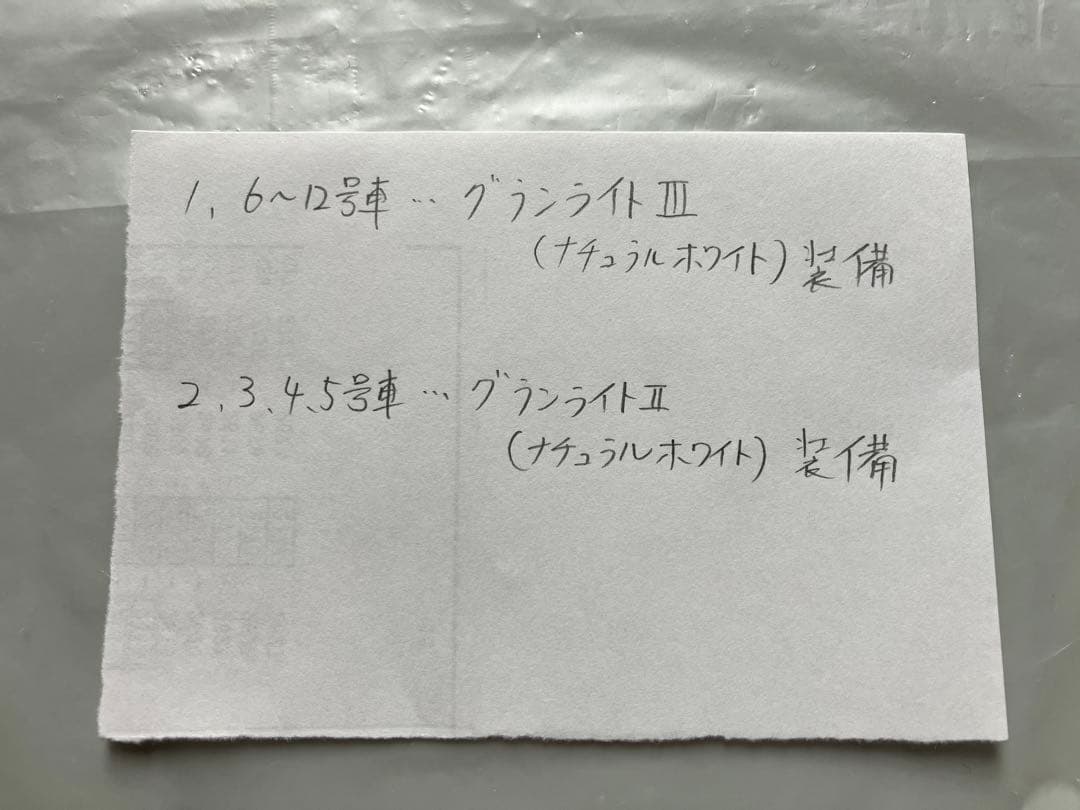 1、6〜12号車…グランライトⅢ
(ナチュラルホワイト)装備
2、3、4、5号車…グランライトⅡ
(ナチュラルホワイト)装備